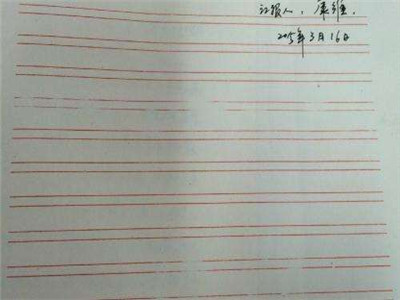 汇报人：康维.
2015年3月16日